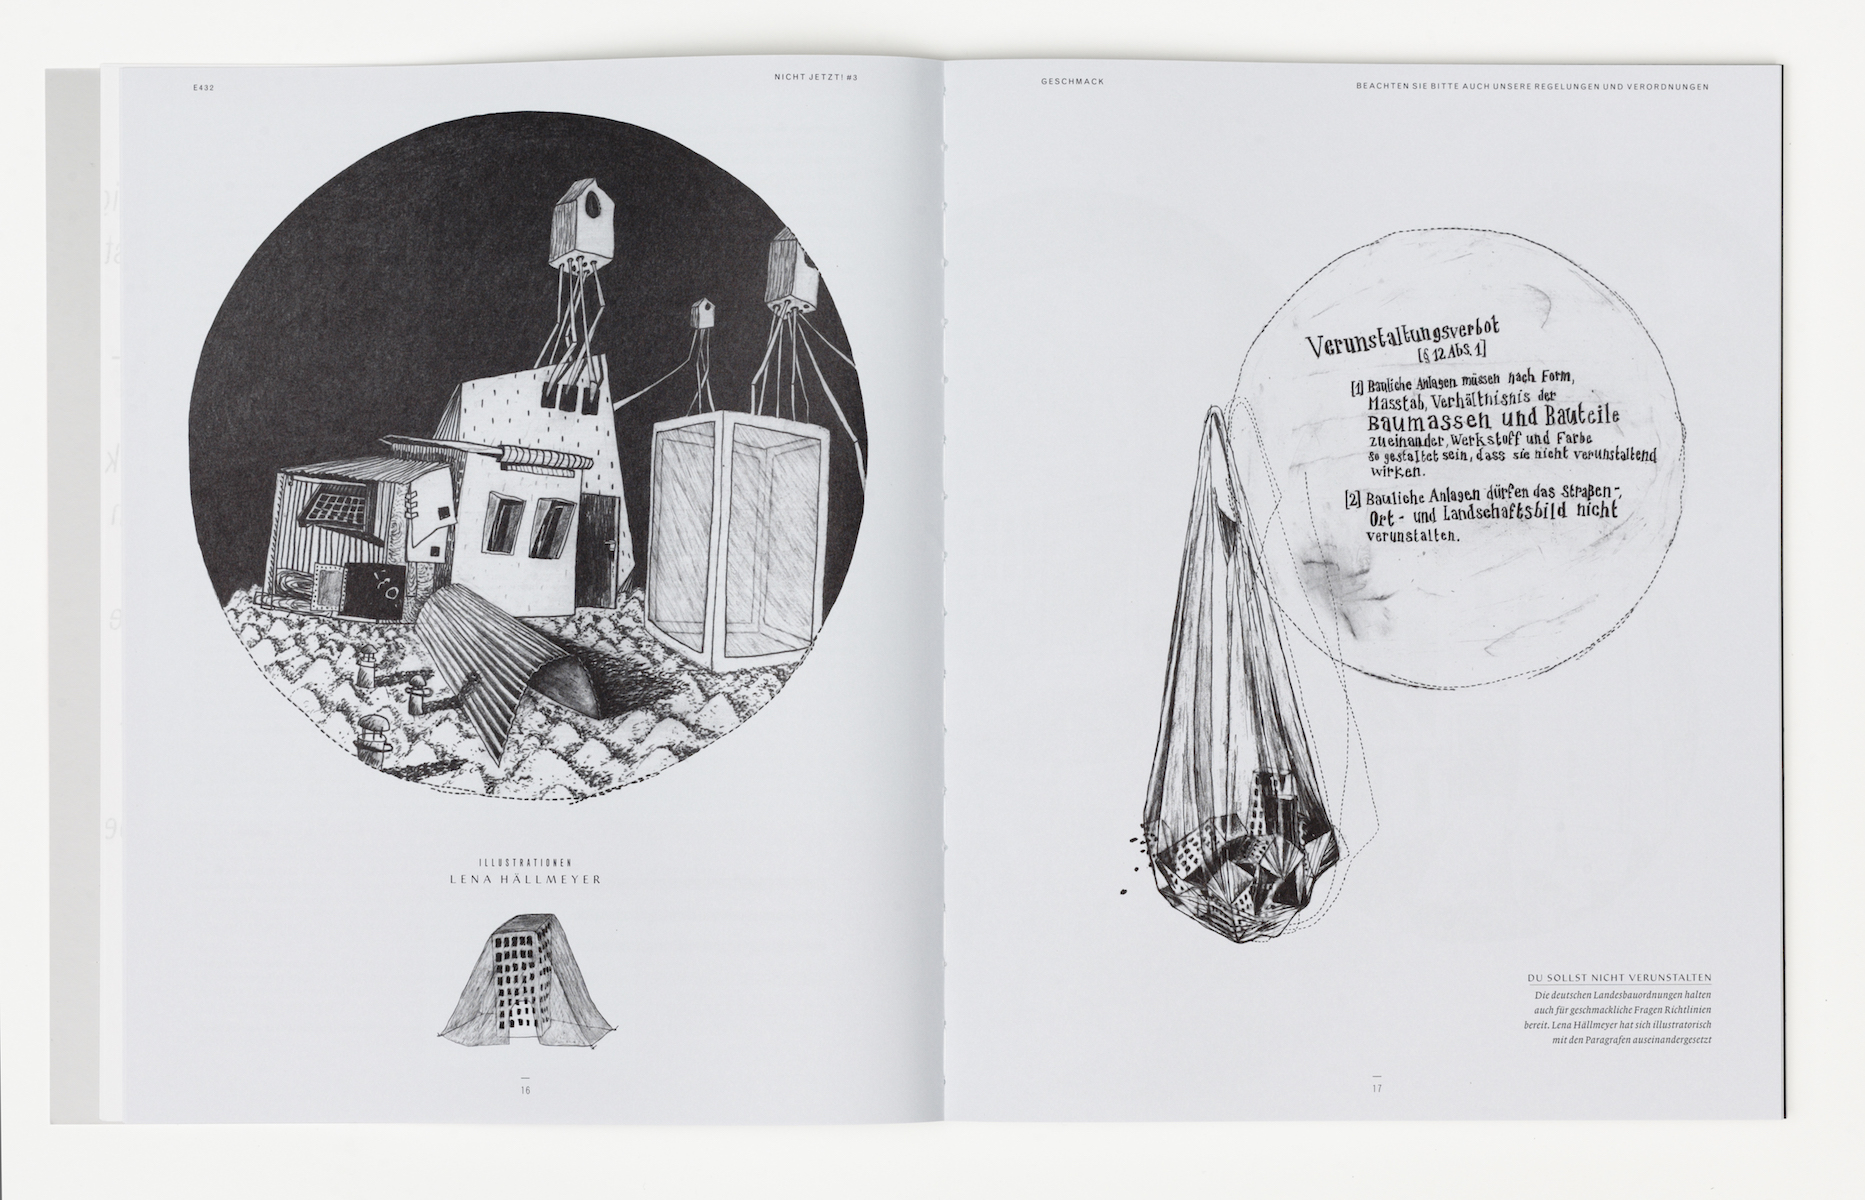 E432
NICHT JETZT! #3
ILLUSTRATIONEN
LENA HÄLLMEYER
16
GESCHMACK
BEACHTEN SIE BITTE AUCH UNSERE REGELUNGEN UND VERORDNUNGEN
Verunstaltungsverbot
[§ 12 Abs. 1]
[1] Bauliche Anlagen müssen nach Form,
Masstab, Verhältnisnis der
Baumassen und Bauteile
zueinander, Werkstoff und Farbe
so gestaltet sein, dass sie nicht verunstaltend
wirken.
[2] Bauliche Anlagen dürfen das Straßen-,
Ort- und Landschaftsbild nicht
verunstalten.
DU SOLLST NICHT VERUNSTALTEN
Die deutschen Landesbauordnungen halten
auch für geschmackliche Fragen Richtlinien
bereit. Lena Hällmeyer hat sich illustratorisch
mit den Paragrafen auseinandergesetzt
17